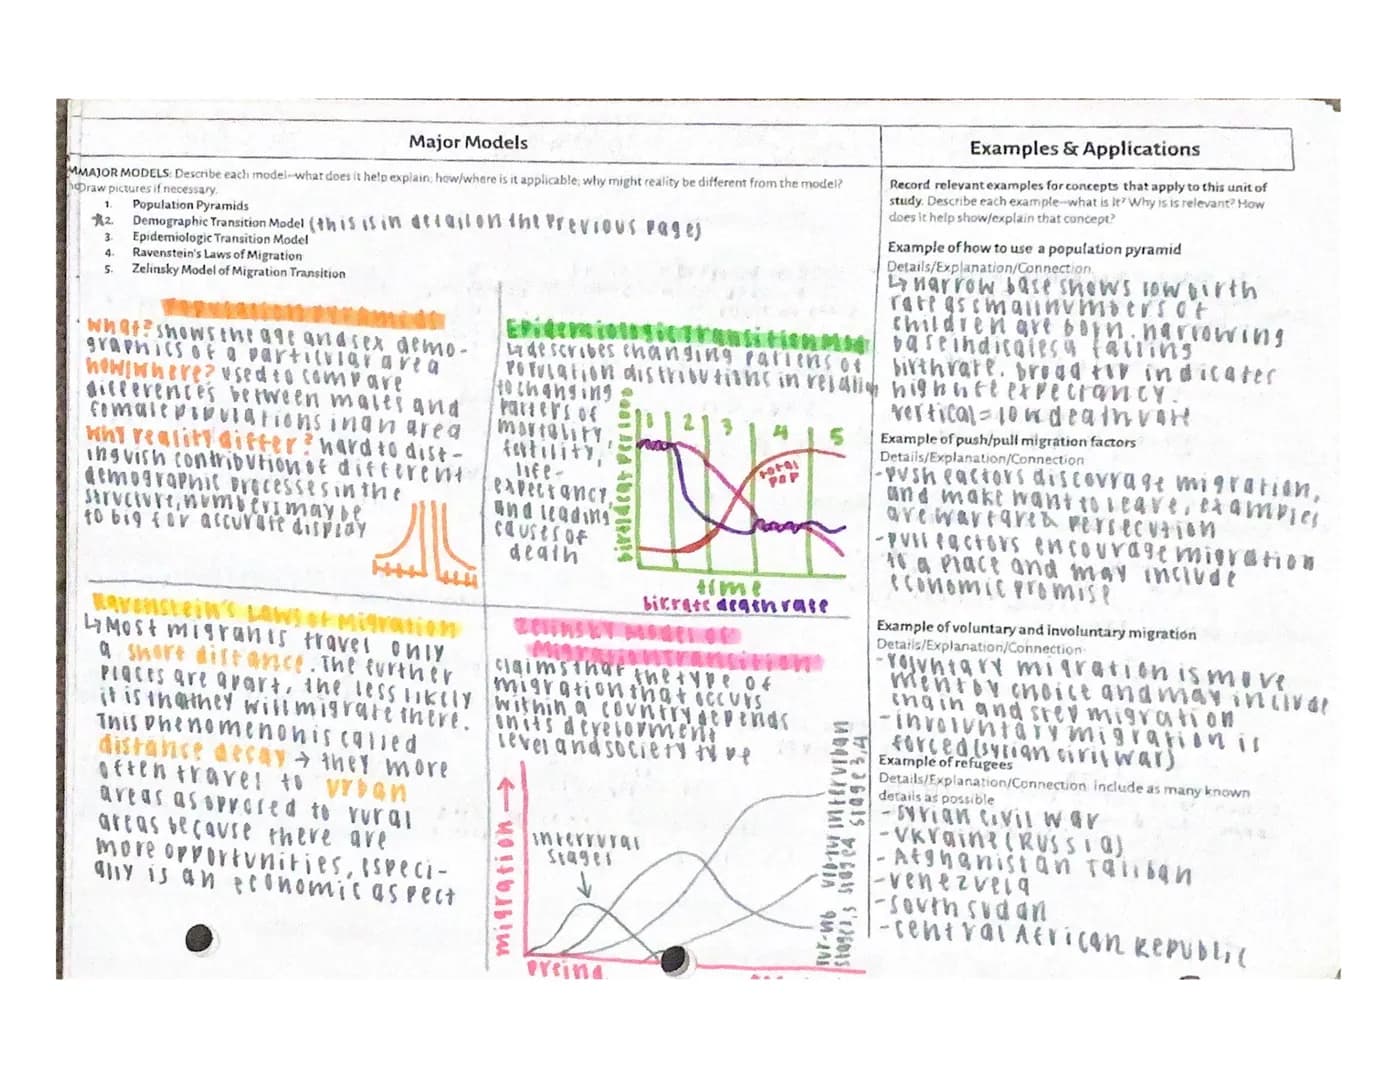 Major Models
MMAJOR MODELS: Describe each model--what does it help explain; how/where is it applicable; why might reality be different from the model?
Draw pictures if necessary.
1. Population Pyramids
★2. Demographic Transition Model (this is in detail on the previous page)
3. Epidemiologic Transition Model
4. Ravenstein's Laws of Migration
5. Zelinsky Model of Migration Transition
Population Pyramids
What? shows the age and sex demo-
graphics of a particular area
how/where? used to compare
differences between males and
female populations in an area
Why reality differ? hard to dist-
inguish contribution of different
demographic processes in the
structure, numbers may be
to big for accurate display
Epidemiologic Transition Mod
↳ describes changing patterns of
population distributions in relation
to changing
patters of
mortality,
fertility,
life-
expectancy,
and leading
causes of
death
1 2 3 4 5
total
pop
time
birrate death rate
Ravenstein's Laws of Migration
↳ Most migrants travel only
a short distance. The further
places are apart, the less likely
it is that they will migrate there.
This phenomenon is called
distance decay → they more
often travel to urban
areas as opposed to rural
areas because there are
more opportunities, especi-
ally is an economic aspect
Zelinsky Model of
Migration Transition
claims that the type of
migration that occurs
within a country depends
on its development
level and society type
migration →
interrural
stages
Preind
Examples & Applications
Record relevant examples for concepts that apply to this unit of
study. Describe each example--what is it? Why is is relevant? How
does it help show/explain that concept?
Example of how to use a population pyramid
Details/Explanation/Connection
↳ narrow base shows low birth
rate as small numbers of
children are born. narrowing
base indicates a falling
birthrate. broad tip indicates
high life expectancy.
vertical = low death rate
Example of push/pull migration factors
Details/Explanation/Connection
-push factors discourage migration,
and make want to leave, examples
are warfare & persecution
-pull factors encourage migration
to a place and may include
economic promise
Example of voluntary and involuntary migration
Details/Explanation/Connection
-voluntary migration is move
ment by choice and may include
chain and step migration
-involuntary migration is
forced (syrian civil war)
Example of refugees
Details/Explanation/Connection. Include as many known
details as possible
-Syrian civil war
-Ukraine (Russia)
-Afghanistan Taliban
-Venezuela
-South Sudan
-Central African Republic